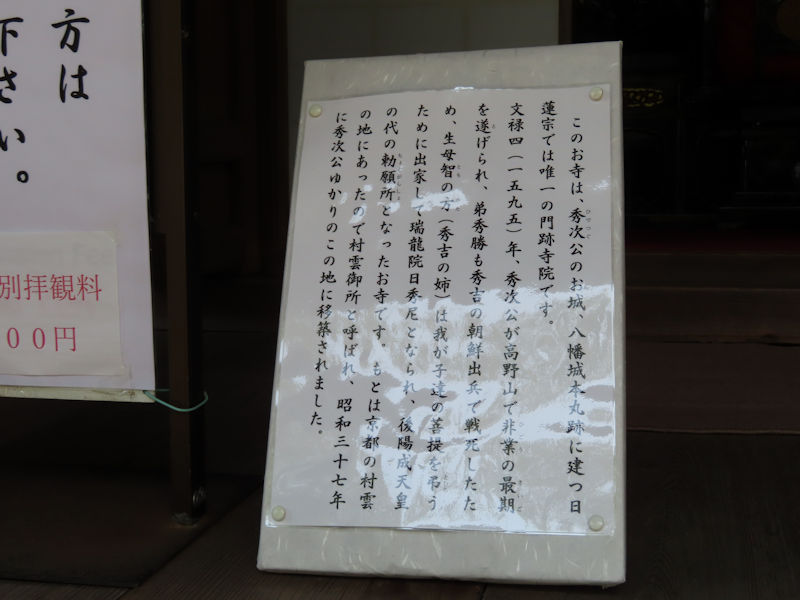 このお寺は、秀次公のお城、八幡城本丸跡に建つ日
蓮宗では唯一の門跡寺院です。
文禄四（一五九五）年、秀次公が高野山で非業の最期
を遂げられ、弟秀勝も秀吉の朝鮮出兵で戦死したた
め、生母智の方（秀吉の姉）は我が子達の菩提を弔う
ために出家して瑞龍院日秀尼となられ、後陽成天皇
の代の勅願所となったお寺です。もとは京都の村雲
の地にあったので村雲御所と呼ばれ、昭和三十七年
に秀次公ゆかりのこの地に移築されました。
方は
下さい。
別拝観料
００円